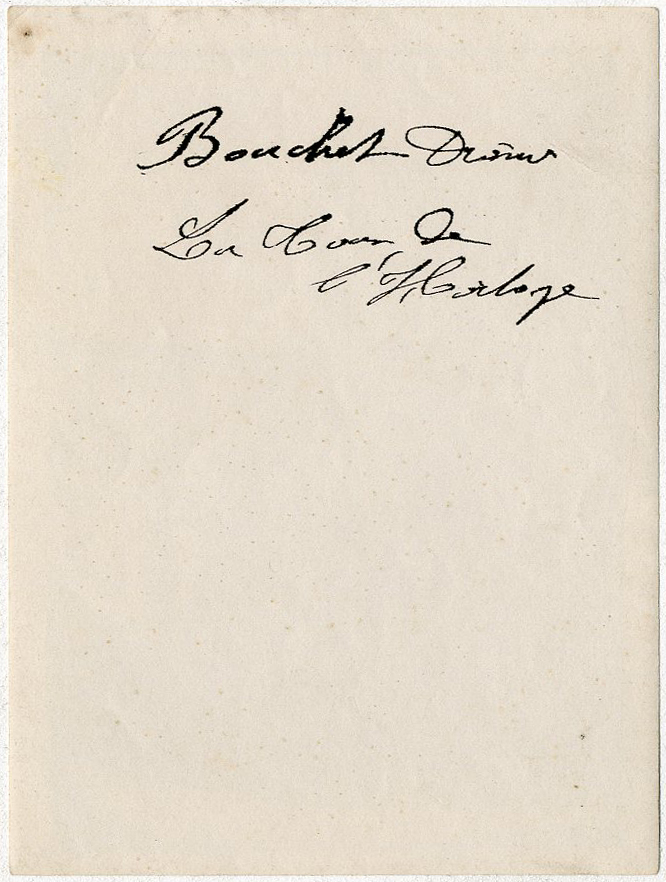 Bouchet
La Tour De
l'Horloge